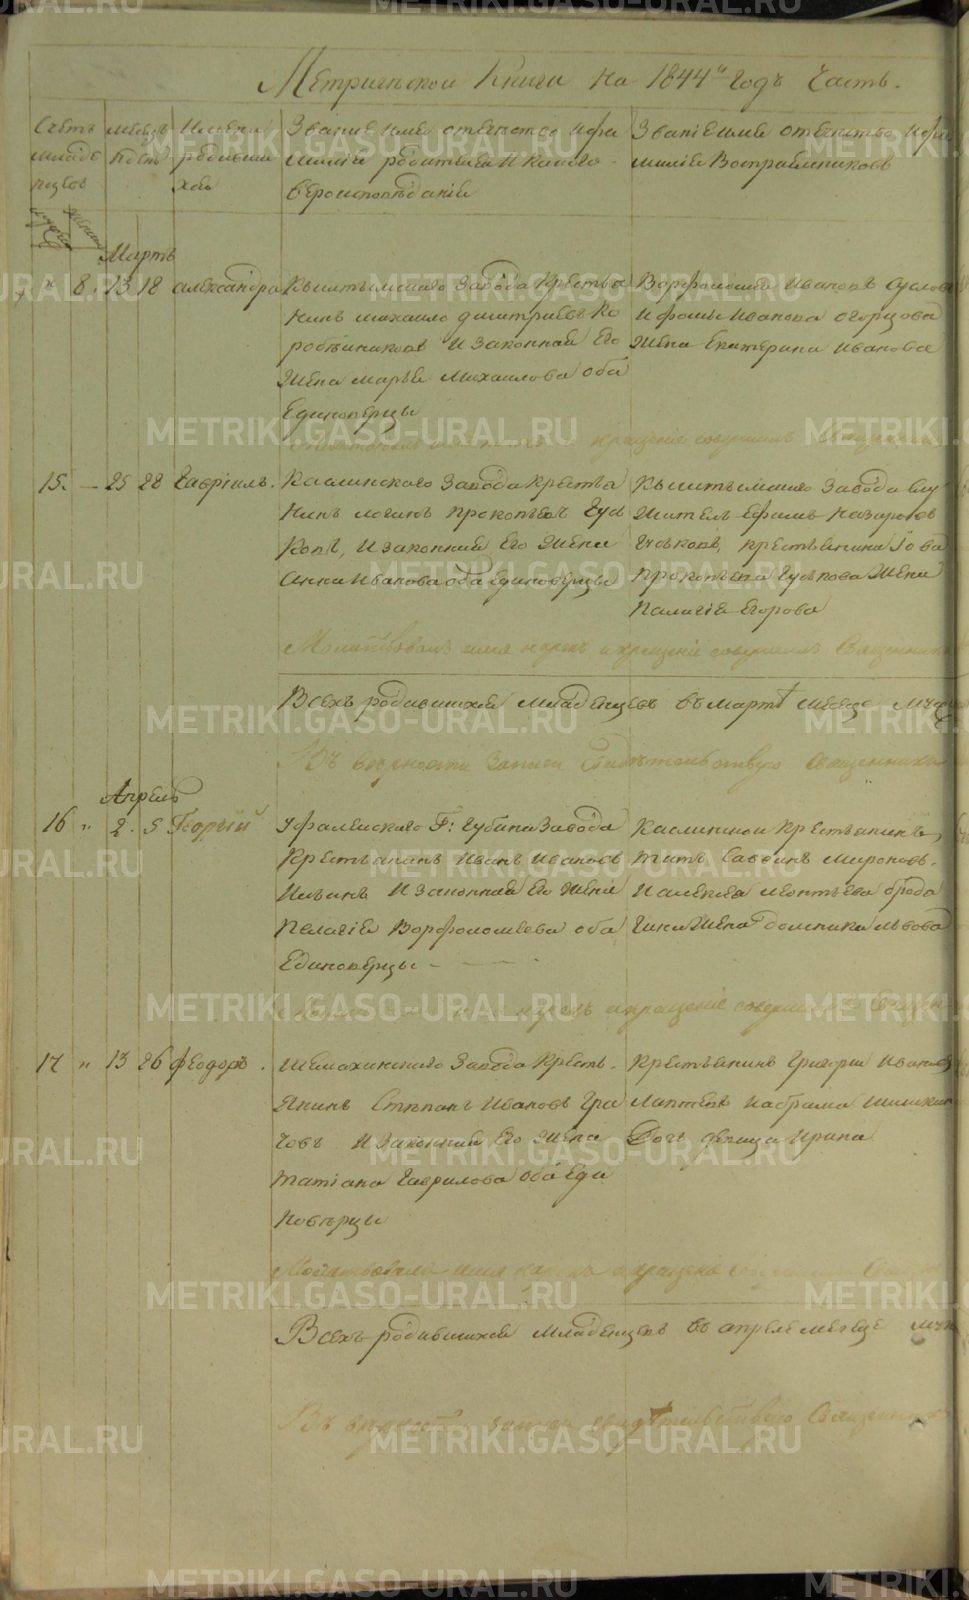 METRIKI.GASO-URAL.RU
Метрической Книги на 1844й Годъ Часть.
Счетъ
младе
нцовъ
месецъ
Имена
родивши
хся
Звание имя отечество и фа
милія родителей и какого
вероисповѣданія
Званіе имя отечество и фа
миліе Воспріемниковъ
Мартъ
" 8. 13 18 александра
Кыштымскаго Завода Крестья
нинъ михаило дмитріевъ Ко
ровниковъ И Законная Его
Жена марья Михаилова оба
Единоверцы
Ворфоломей Ивановъ Суслов
И фомы Иванова огорцова
Жена Екатерина Иванова
крещеніе совершилъ Священникъ
15. — 25 28 Гавріилъ.
Каслинского Завода Крестья
нинъ логинъ прокопьевъ Гусь
ковъ, И законная Его Жена
Анна Иванова оба Единоверцы
Кыштымского Завода Слу
Житель Ефимъ Назаровъ
Гуськовъ, крестьянина Iова
прокопьева Гуськова Жена
Палагія Егорова
Молитвовалъ имя нарекъ и крещеніе совершилъ Священникъ
Всехъ родившихся младенцевъ въ мартѣ месеце
Въ верности записи свидѣтельствую Священникъ
Апрель
16 " 2. 5 Георгій
Уфалейского Г: Губина Завода
Крестьянинъ Иванъ Ивановъ
Ильинъ И законная Его Жена
Пелагія Ворфоломеева оба
Единоверцы
Каслинской Крестьянинъ,
титъ Саввинъ Мироновъ.
И алексея леонтьева брода
гина Жена домника львова
нарекъ и крещеніе совершилъ
17 " 13 26 феодоръ.
Шемахинского Завода Кресть
янинъ Стѣпанъ Ивановъ Гра
човъ И Законная Его Жена
татіана Гаврилова оба Еди
новѣрцы
Крестьянинъ Григорій Ивановъ
Лаптевъ И абрама Шишкин
Дочь девица Ирина
Молитвовалъ имя нарекъ и крещеніе
Всехъ родившихся младенцевъ въ апреле месеце
Въ верности записи свидѣтельствую Священникъ